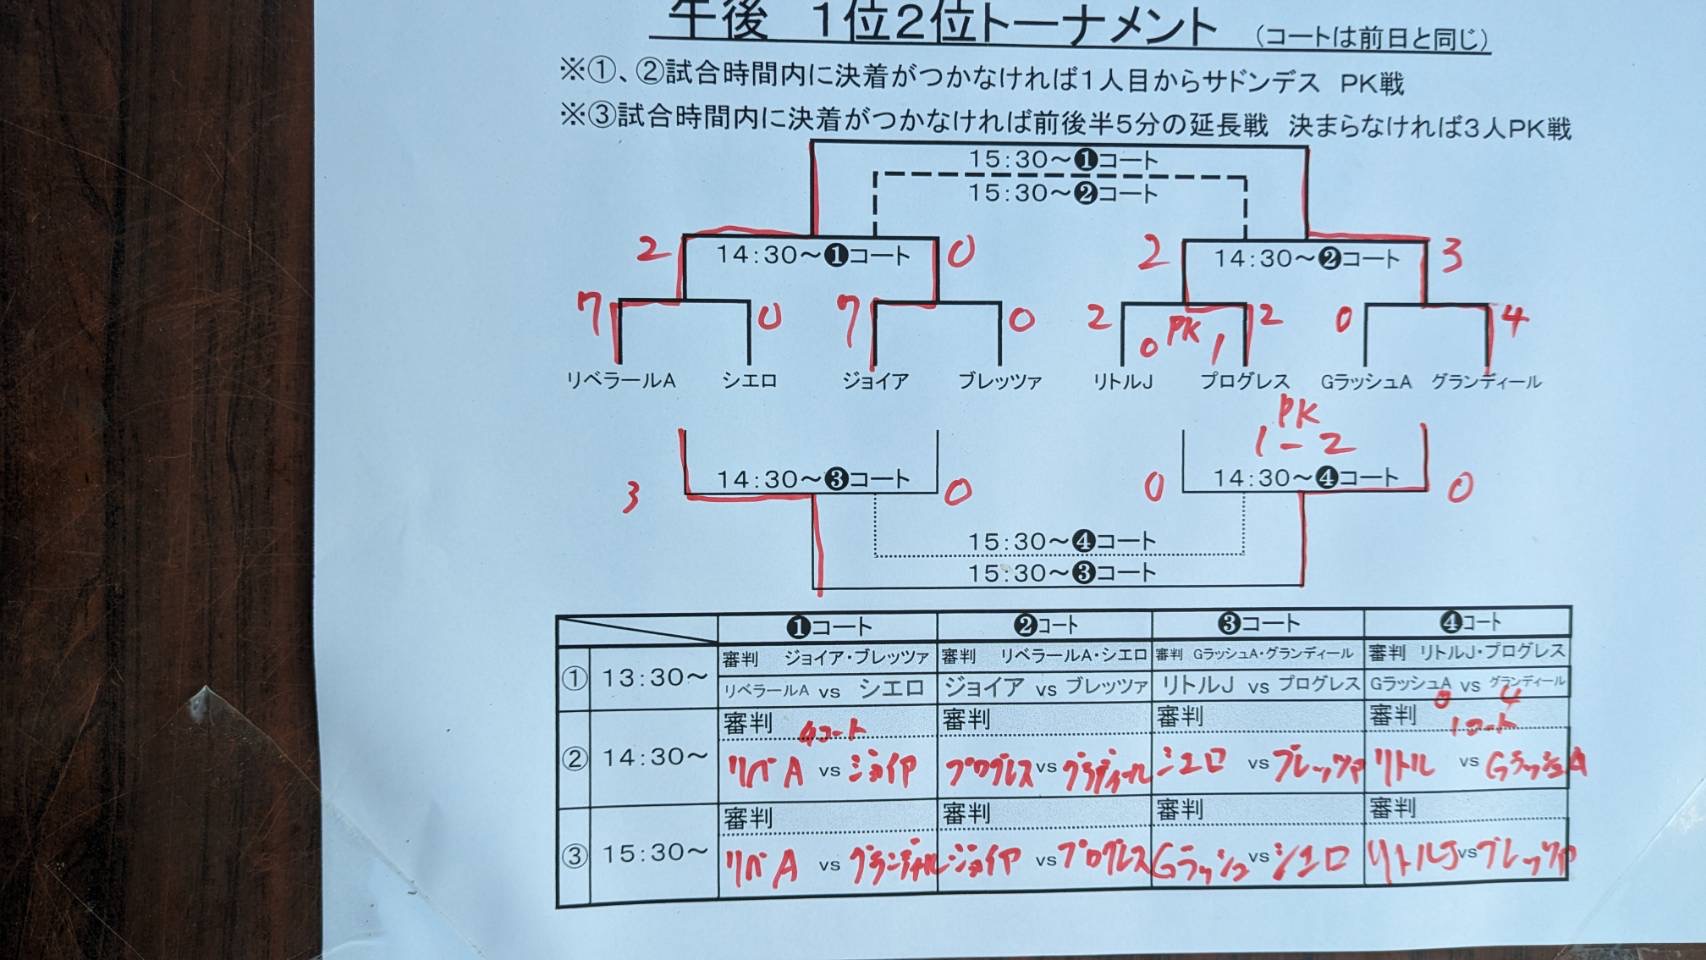 午後 1位2位トーナメント (コートは前日と同じ)
※①、②試合時間内に決着がつかなければ1人目からサドンデス PK戦
※③試合時間内に決着がつかなければ前後半5分の延長戦 決まらなければ3人PK戦
15:30～❶コート
15:30～❷コート
2 14:30～❶コート 0 2 14:30～❷コート 3
7 0 7 0 2 PK 2 0 4
0 1
リベラールA シエロ ジョイア ブレッツァ リトルJ プログレス GラッシュA グランディール
PK
1-2
14:30～❸コート 14:30～❹コート
3 0 0 0
15:30～❹コート
15:30～❸コート
❶コート ❷コート ❸コート ❹コート
審判 ジョイア・ブレッツァ 審判 リベラールA・シエロ 審判 GラッシュA・グランディール 審判 リトルJ・プログレス
① 13:30～
リベラールA vs シエロ ジョイア vs ブレッツァ リトルJ vs プログレス GラッシュA vs グランディール
0 4
審判 4コート 審判 審判 審判 1コート
② 14:30～
リベA vs ジョイア プログレス vs グランディール シエロ vs ブレッツァ リトル vs GラッシュA
審判 審判 審判 審判
③ 15:30～
リベA vs グランディール ジョイア vs プログレス Gラッシュ vs シエロ リトルJ vs ブレッツァ